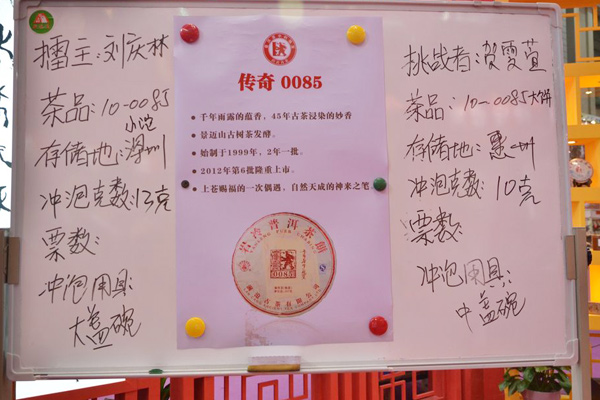 擂主:刘庆林
茶品:10-0085
小沱
存储地:深圳
冲泡克数:13克
票数:
冲泡用具:
大盖碗
传奇 0085
• 千年雨露的蕴香，45年古茶浸染的妙香
• 景迈山古树茶发酵。
• 始制于1999年，2年一批。
• 2012年第6批隆重上市。
• 上苍赐福的一次偶遇，自然天成的神来之笔
0085
挑战者:贺雯萱
茶品:10-0085大饼
存储地:
冲泡克数:10克
票数:
冲泡用具:
中盖碗